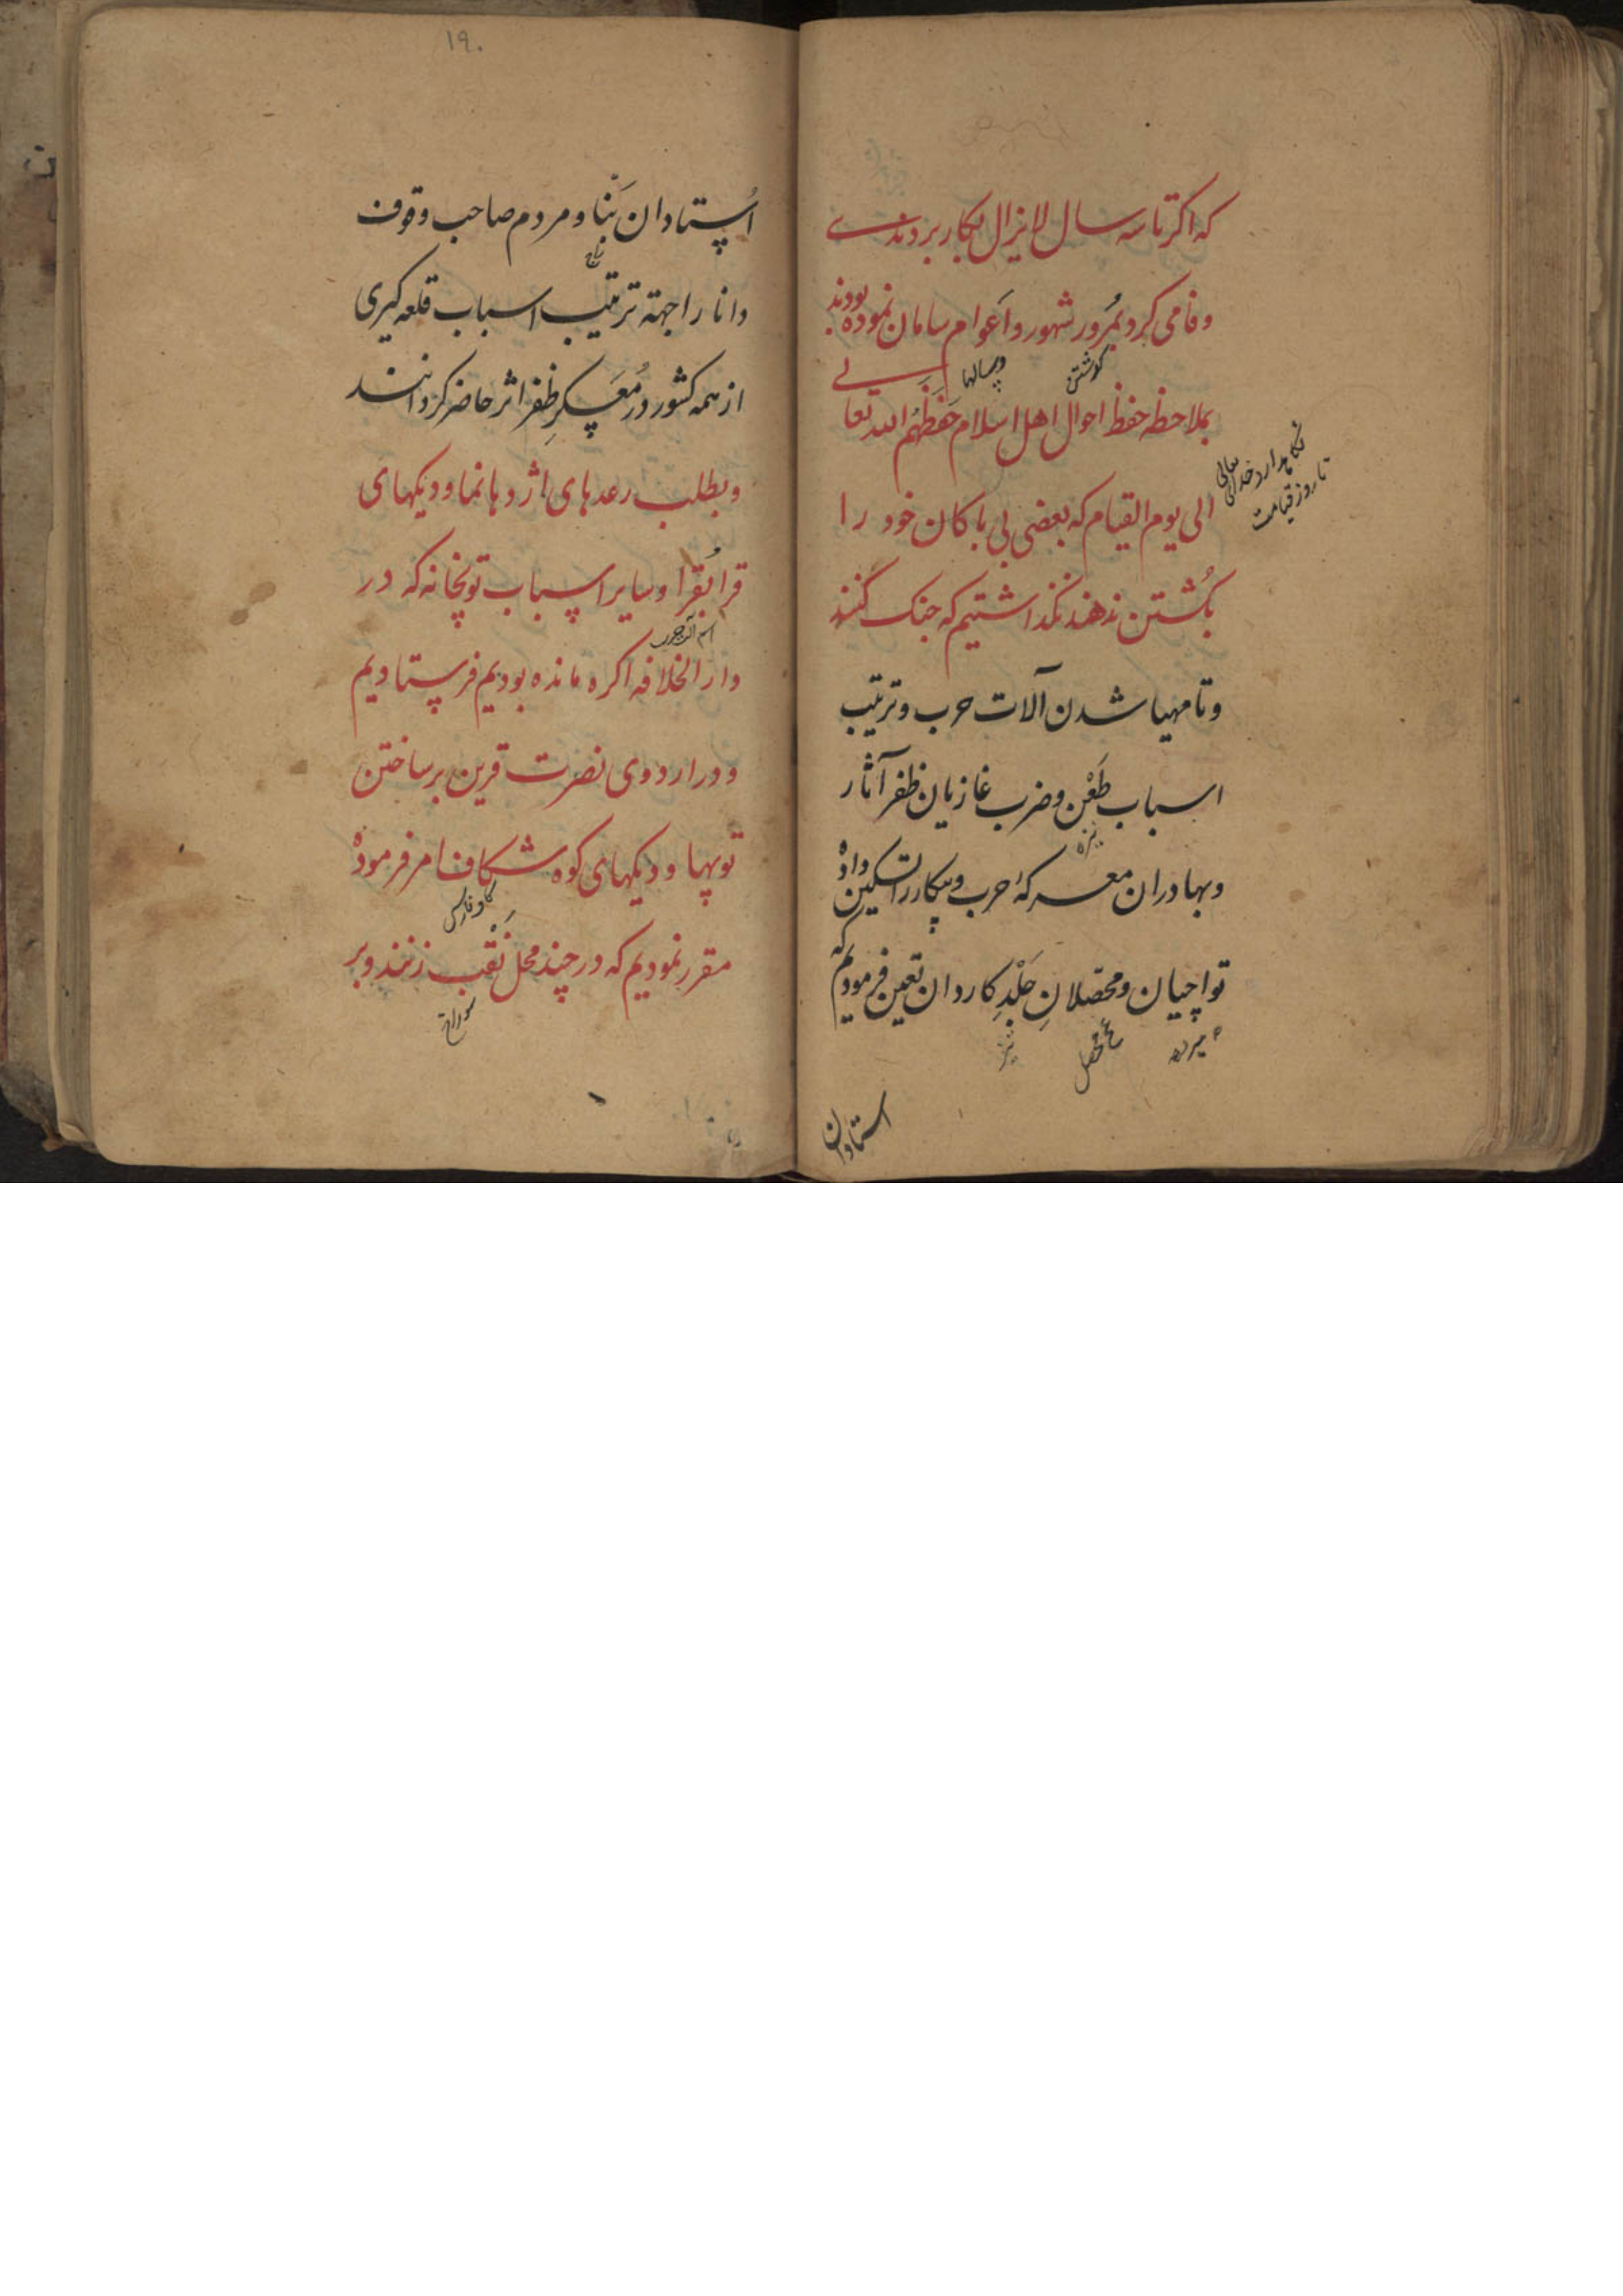 که اکر تا سه سال لایزال بکار بردندے
وفا می کرد بمُرور شهور و اَعوام سامان نموده بودند
کوشتن
وسالها
بملاحظه حفظ احوال اهل اسلام حَفَظَهُم الله تعالے
نکاهدارد خدای تعالی
تا روز قیامت
الی یوم القیام که بعضی بی باکان خود را
بکُشتن ندهند نکذاشتیم که جنک کنند
وتا مهیا شدن آلات حرب وترتیب
اسباب طَعْن وضرب غازیان ظفر آثار
نیزه
وبهادران معرکهٔ حرب وپیکار را تسکین داده
تواچیان ومحصّلانِ جَلْدِ کاردان تعیین فرمودیم که
محصل
تیز
استادان
۱۹۰
اُستادان بَنّا ومردم صاحب وقوف
دانا را جهة ترتیب اسباب قلعه کیری
از همه کشور در مُعَسکرِ ظفر اثر حاضر کردانند
وبطلب رعدهای اژدها نما ودیکهای
قرابُقرا وسایر اسباب توپخانه که در
اسم آلت حرب
دار الخلافه اکره مانده بودیم فرستادیم
ودر اردوی نصرت قرین بر ساختن
توپها ودیکهای کوه شکاف امر فرموده
مقرر نمودیم که در چند محل نَقْب زنند وبر
سوراخ